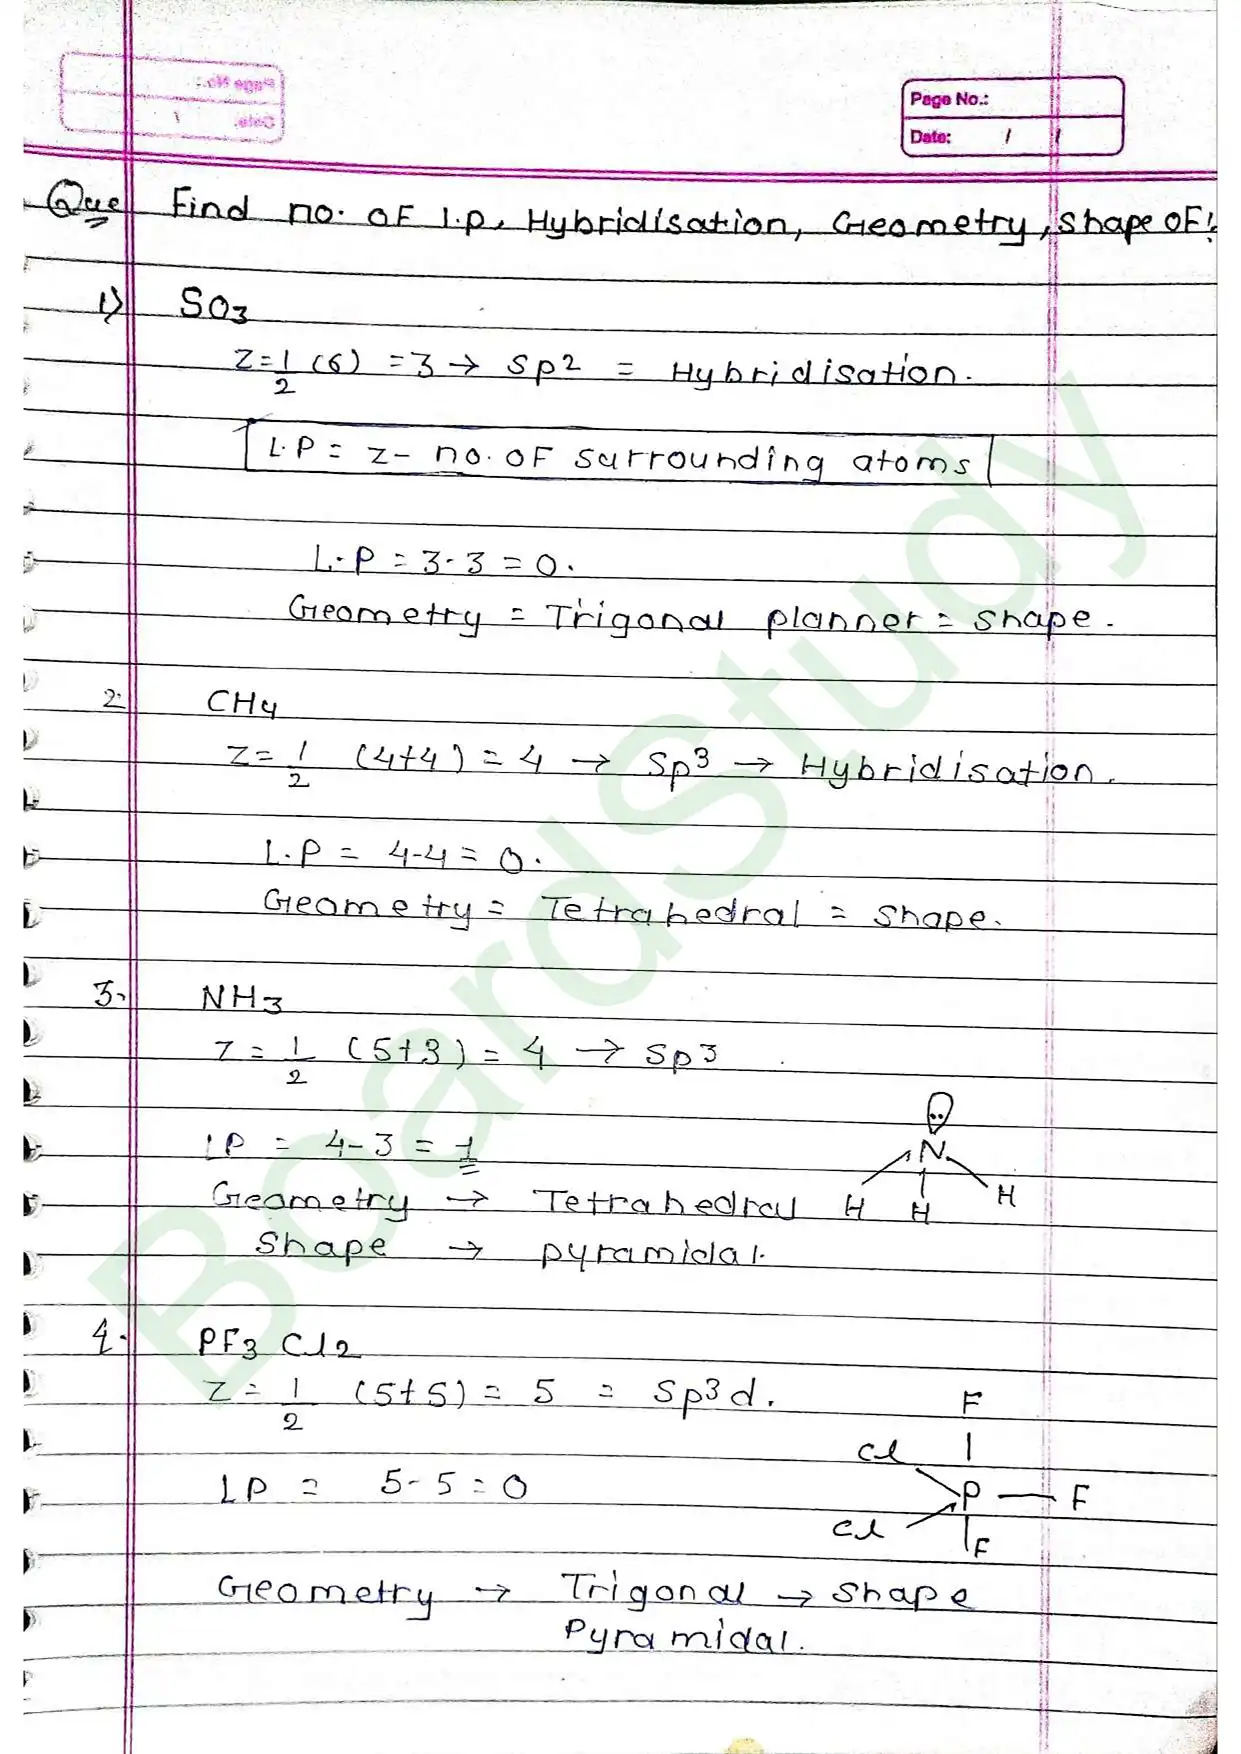 Page No.:
Date: / /
Page No.:
Date: /
Que Find no. of l.p, Hybridisation, Geometry, shape of:
1) SO3
Z = 1/2 (6) = 3 → Sp2 = Hybridisation.
L.P = Z - no. of surrounding atoms
L.P = 3-3 = 0.
Geometry = Trigonal planner = shape.
2. CH4
Z = 1/2 (4+4) = 4 → Sp3 → Hybridisation.
L.P = 4-4 = 0.
Geometry = Tetrahedral = Shape.
3. NH3
Z = 1/2 (5+3) = 4 → Sp3
LP = 4-3 = 1
N
H H H
Geometry → Tetrahedral
Shape → pyramidal.
4. PF3 Cl2
Z = 1/2 (5+5) = 5 = Sp3d.
F
Cl
LP = 5-5 = 0
P F
Cl
F
Geometry → Trigonal → Shape
Pyramidal.
BoardStudy